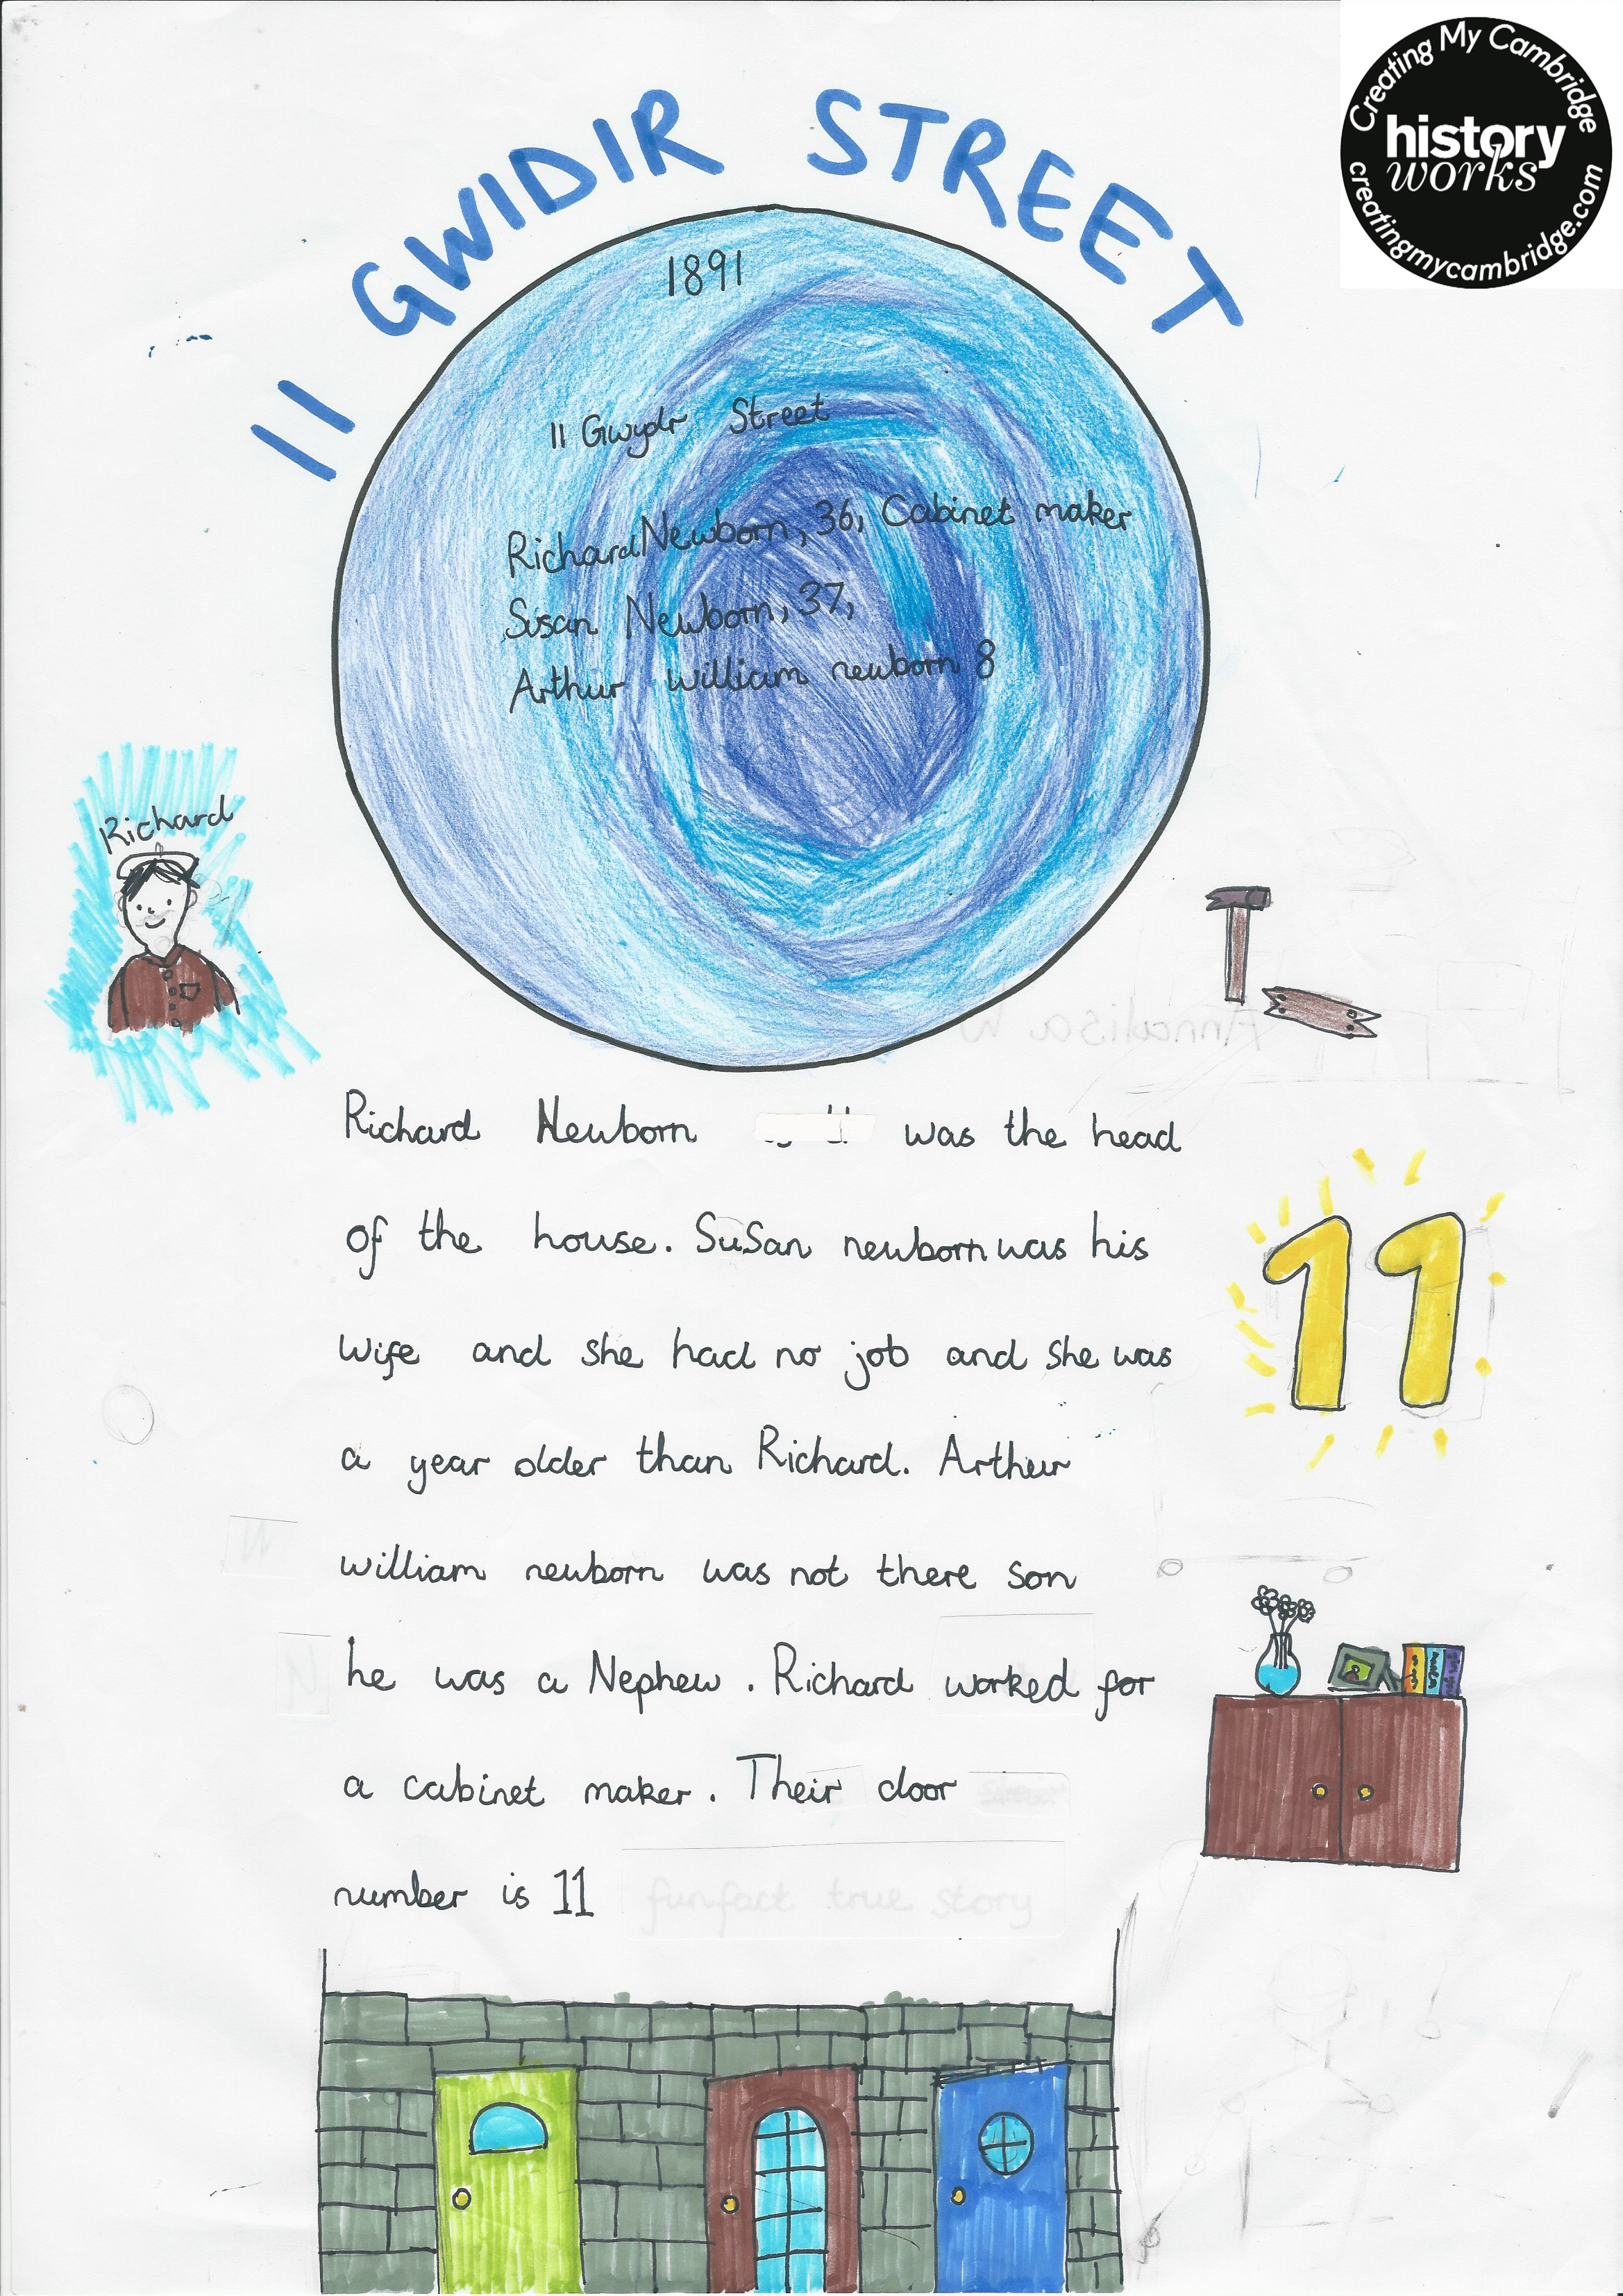 Creating My Cambridge
history
works
creatingmycambridge.com
11 GWIDIR STREET
1891
11 Gwydr Street
Richard Newborn, 36, Cabinet maker
Susan Newborn, 37,
Arthur william newborn 8
Richard
Annalisa W
Richard Newborn was the head
of the house. SuSan newborn was his
wife and she had no job and she was
a year older than Richard. Arthur
william newborn was not there son
he was a Nephew. Richard worked for
a cabinet maker. Their door
number is 11
funfact true story
11